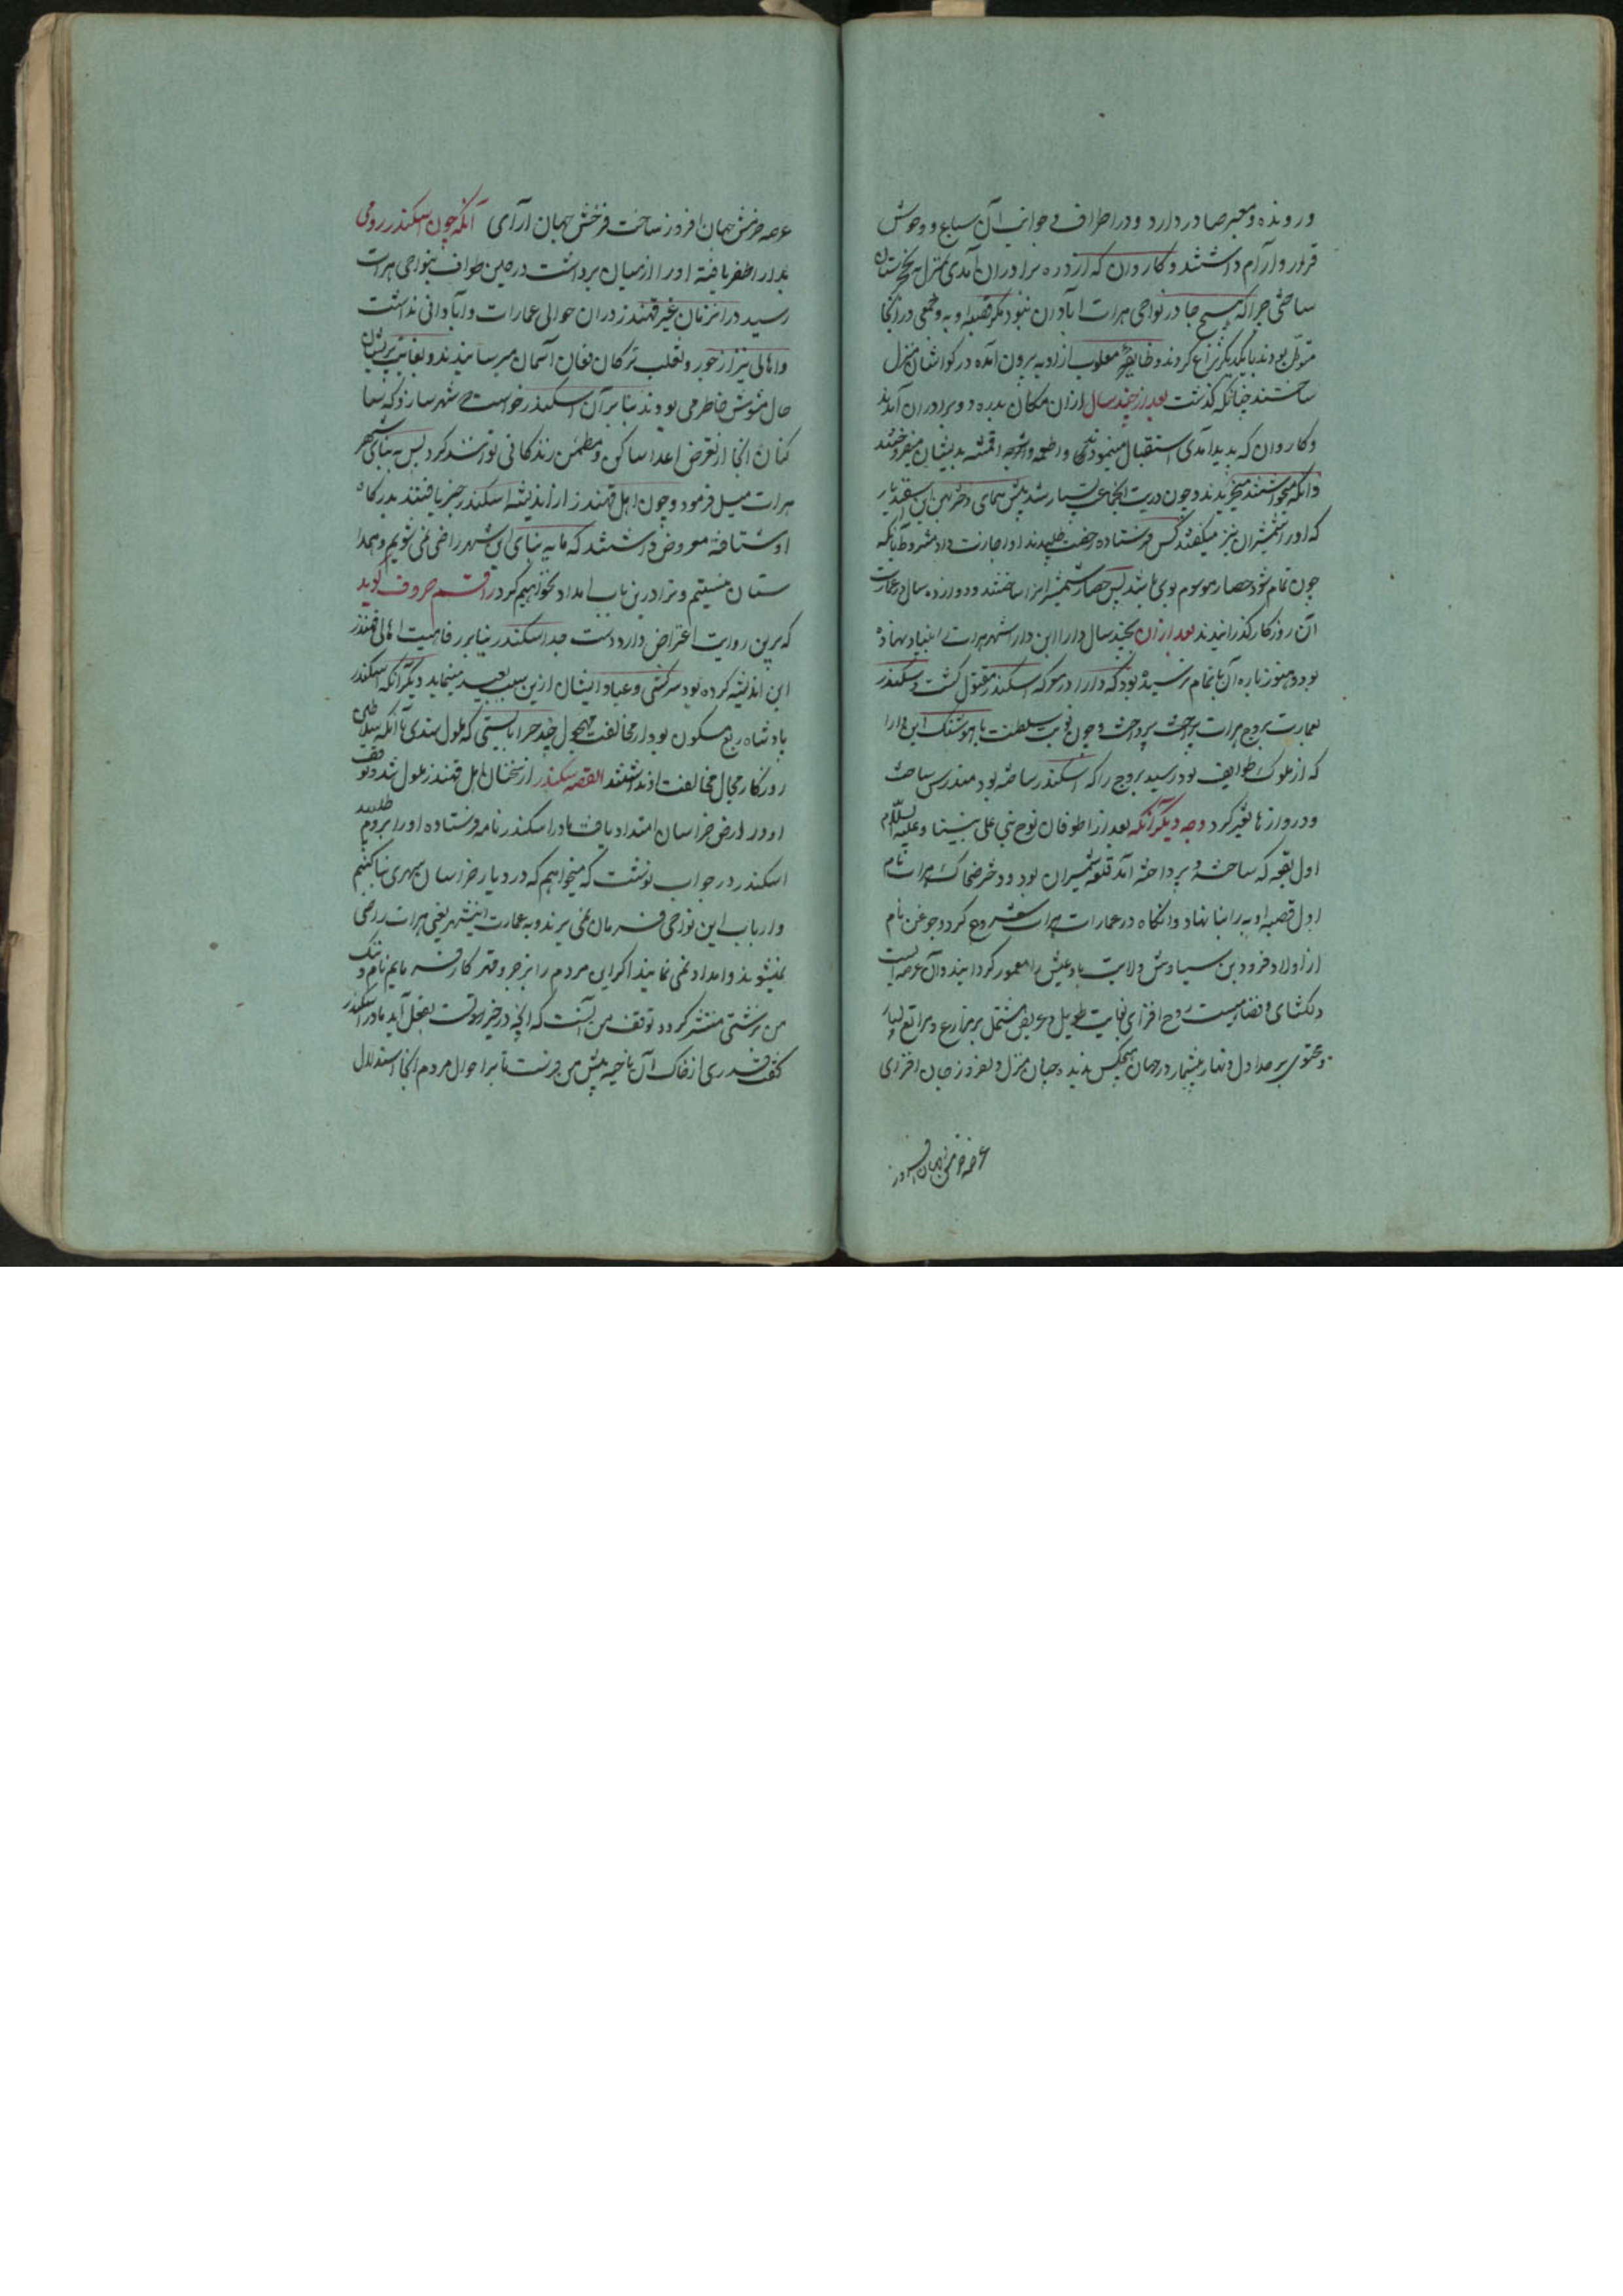 و رونده و معبر صادر دارد و در اطراف و جوانب آن سباع و وحوش
قرار و آرام داشتند و کاروان که از دره برادران آمدی بمنزل کنجستان
ساختی چرا که هیچ جا در نواحی هرات آبادان نبود مگر قصبه اوبه و جمعی در آنجا
متوطن بودند با یکدیگر نزاع کردند و طایفه مغلوب از اوبه بیرون آمده در کواشان منزل
ساختند چنانکه گذشت بعد از چند سال از ان مکان بدره دو برادران آمدند
و کاروان که پدید آمدی استقبال مینمودندی و اطعمه و اشربه اقمشه بدیشان میفروختند
و آنکه میخواستند میخریدند و چون دریت انجا عیب بسیار شد پیش همای دختر بهمن ابن اسفندیار
که او را شمیران نیز میگفتند کس فرستاده رخصت طلبیدند او اجازت داد مشروط بانکه
چون تمام شود حصار موسوم بوی باشد پس حصار شمیران را ساختند و دوازده سال در عمارت
آن روزکار گذرانیدند بعد از ان بچند سال دارا ابن دارا شهر هرات را بنیاد نهاده
بود و هنوز باره آن باتمام نرسیده بود که دارا در معرکه اسکندر مقتول گشت و سکندر
بعمارت بروج هرات پرداخت و چون نوبت سلطنت باهوشنگ ابن دارا
که از ملوک طوایف بود رسید بروج را که اسکندر ساخته بود مندرس ساخت
و دروازها تغیر کرد وجه دیگر آنکه بعد از طوفان نوح نبی علی نبینا و علیه السلام
اول بقعه که ساخته و پرداخته آمد قلعه شمیران بود و دختر ضحاک هرات نام
اول قصبه اوبه را بنا نهاد و آنگاه در عمارات هرات شروع کرد و جوغن نام
از اولاد فرود بن سیاوش ولایت بادغیش را معمور گردانیند و آن عرصه ایست
دلکشای و فضائیست روح افزای بغایت طویل و عریض مشتمل بر مزارع و مراتع بسیار
و محتوی بر جداول و انهار بیشمار در جهان هیچکس ندیده چنان منزل دلفروز جان افزای
عرصه خرمش جهان افروز
عرصه خرمش جهان افروز ساخت فرخش جهان آرای آنکه چون اسکندر رومی
بدارا ظفر یافته او را از میان برداشت در حین طواف بنواحی هرات
رسید در انزمان غیر قهندز در ان حوالی عمارات و آبادانی نداشت
و اهالی نیز از جور و تغلب ترکان فغان آسمان میرسانیدند و بغایت پریشان
حال مشوش خاطر می بودند بنابر آن اسکندر خواست که شهر سازد که سا
کنان انجا از تعرض اعدا ساکن و مطمئن زندکانی توانند کرد پس به بنای شهر
هرات میل فرمود و چون اهل قهندز از اندیشه اسکندر خبر یافتند بدرکاه
او شتافته معروض داشتند که ما به بنای این شهر راضی نمی شویم و همدا
ستان نیستیم و ترا درین باب امداد نخواهیم کرد راقم حروف گوید
که برین روایت اعتراض وارد است چه اسکندر بنابر رفاهیت اهالی قهندز
این اندیشه کرده بود سرکشی و عناد ایشان ازین سبب بعید مینماید دیگر آنکه اسکندر
پادشاه ربع مسکون بود از مخالفت چند چرا بایستی که ملول شدی با آنکه سلاطین
روزگار مجال مخالفت او نداشتند القصه سکندر از سخنان اهل قهندز ملول شد و توقف
او در ارض خراسان امتداد یافت مادر اسکندر نامه فرستاده او را بروم طلبید
اسکندر در جواب نوشت که میخواهم که در دیار خراسان شهری بنا کنیم
و ارباب این نواحی فرمان نمی برند و به عمارت اینشهر یعنی هرات راضی
نمیشوند و امداد نمی نمایند اگر این مردم را بزجر و قهر کار فرمایم نام و ننک
من بزشتی منتشر گردد توقف من اینست که آنچه در خیر قوتست بفعل آید مادر اسکندر
گفت قدری از خاک آن ناحیه پیش من فرست تا بر احوال مردم انجا استدلال